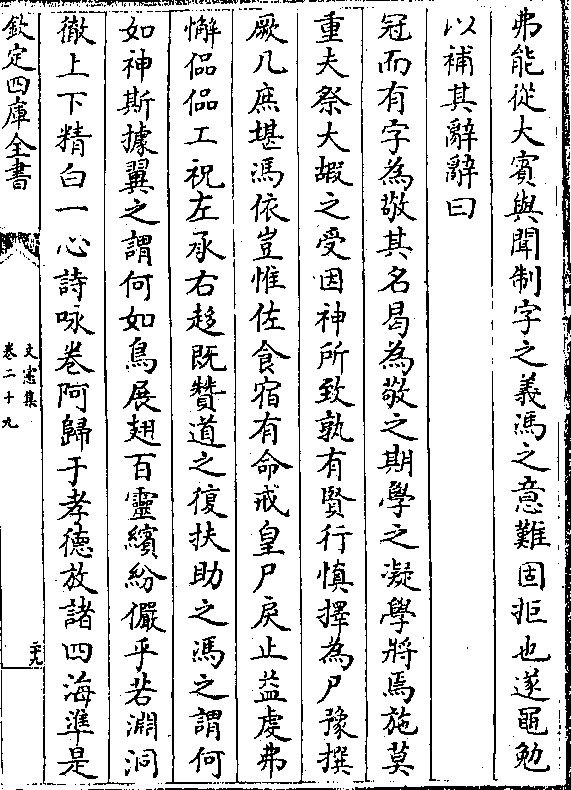 弗能從大賓與聞制字之義馮之意難固拒也遂黽勉
以補其辭辭曰
冠而有字為敬其名曷為敬之期學之凝學將焉施莫
重夫祭大嘏之受因神所致孰有賢行慎擇為尸豫撰
厥几庶堪馮依豈惟佐食宿有命戒皇尸戾止益虔弗
懈偘偘工祝左承右趍既贊道之復扶助之馮之謂何
如神斯據翼之謂何如鳥展翅百靈繽紛儼乎若淵洞
徹上下精白一心詩咏卷阿歸于孝德放諸四海準是
欽定四庫全書
文憲集
卷二十九
二十九